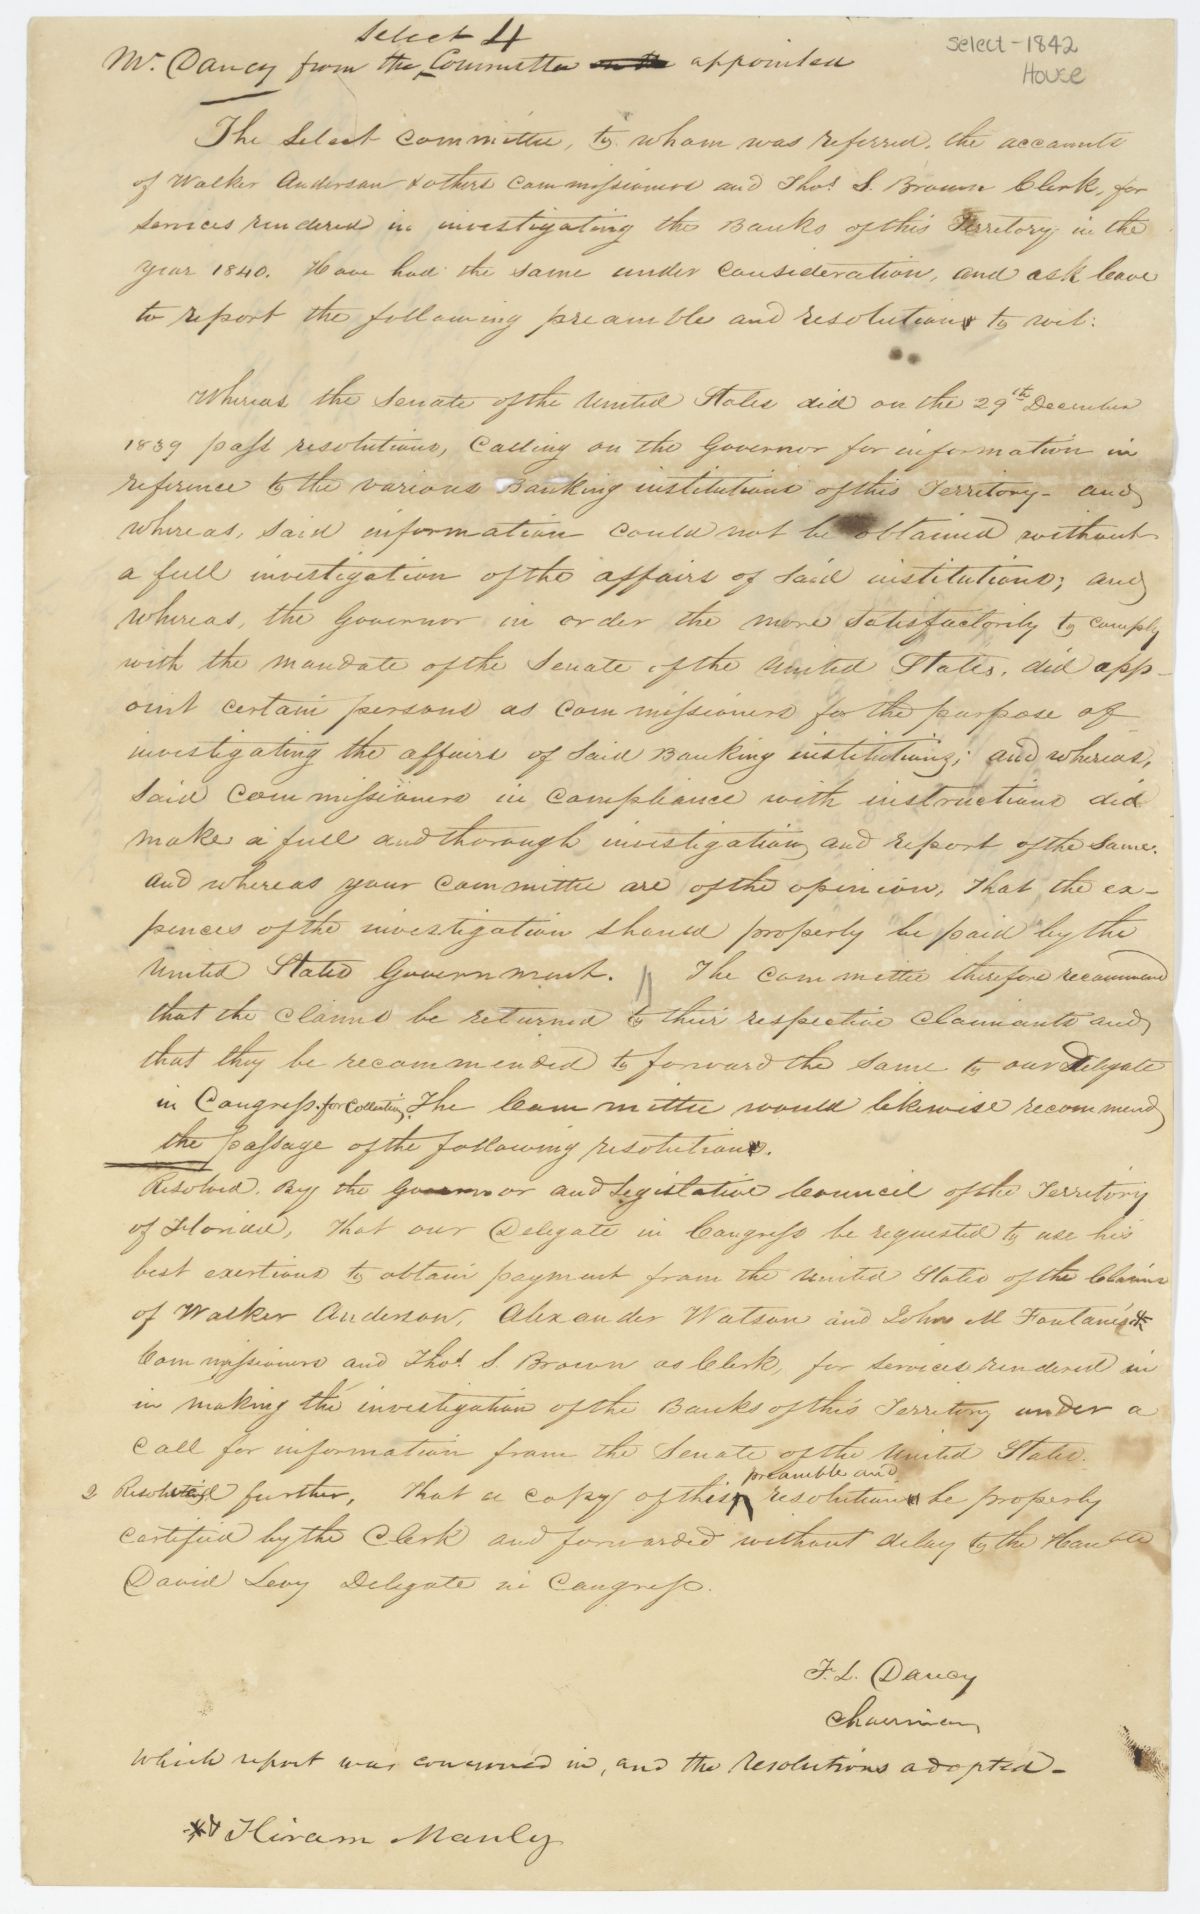 Select 4
Select - 1842
House
Mr. Dancy from the Committee appointed
The Select Committee, to whom was referred, the accounts
of Walker Anderson & others Commissioners and Thos. S. Brown Clerk, for
services rendered in investigating the Banks of this Territory in the
year 1840. Have had the same under consideration, and ask leave
to report the following preamble and resolutions to wit:
Whereas the Senate of the United States did on the 29th December
1839 pass resolutions, Calling on the Governor for information in
reference to the various Banking institutions of this Territory - and
whereas, said information could not be obtained without
a full investigation of the affairs of said institutions; and
whereas, the Governor in order the more satisfactorily to comply
with the mandate of the Senate of the United States, did app-
oint certain persons as Commissioners for the purpose of
investigating the affairs of said Banking institutions; and whereas,
said Commissioners in compliance with instructions did
make a full and thorough investigation and report of the same.
and whereas your Committee are of the opinion, that the ex-
pences of the investigation should properly be paid by the
United States Government. The Committee therefore recommend
that the claims be returned to their respective claimants and
that they be recommended to forward the same to our Delegate
in Congress for Collection, The Committee would likewise recommend
the passage of the following resolutions.
Resolved. By the Governor and Legislative Council of the Territory
of Florida, That our Delegate in Congress be requested to use his
best exertions to obtain payment from the United States of the Claims
of Walker Anderson, Alexander Watson and John M Fontané *
Commissioners and Thos. S. Brown as Clerk, for services rendered in
in making the investigation of the Banks of this Territory under a
Call for information from the Senate of the United States.
preamble and
2 Resolved further, That a copy of this resolution be properly
certified by the Clerk and forwarded without delay to the Honble
David Levy Delegate in Congress.
F. L. Dancy
Chairman
Which report was concurred in, and the resolutions adopted -
* & Hiram Manly